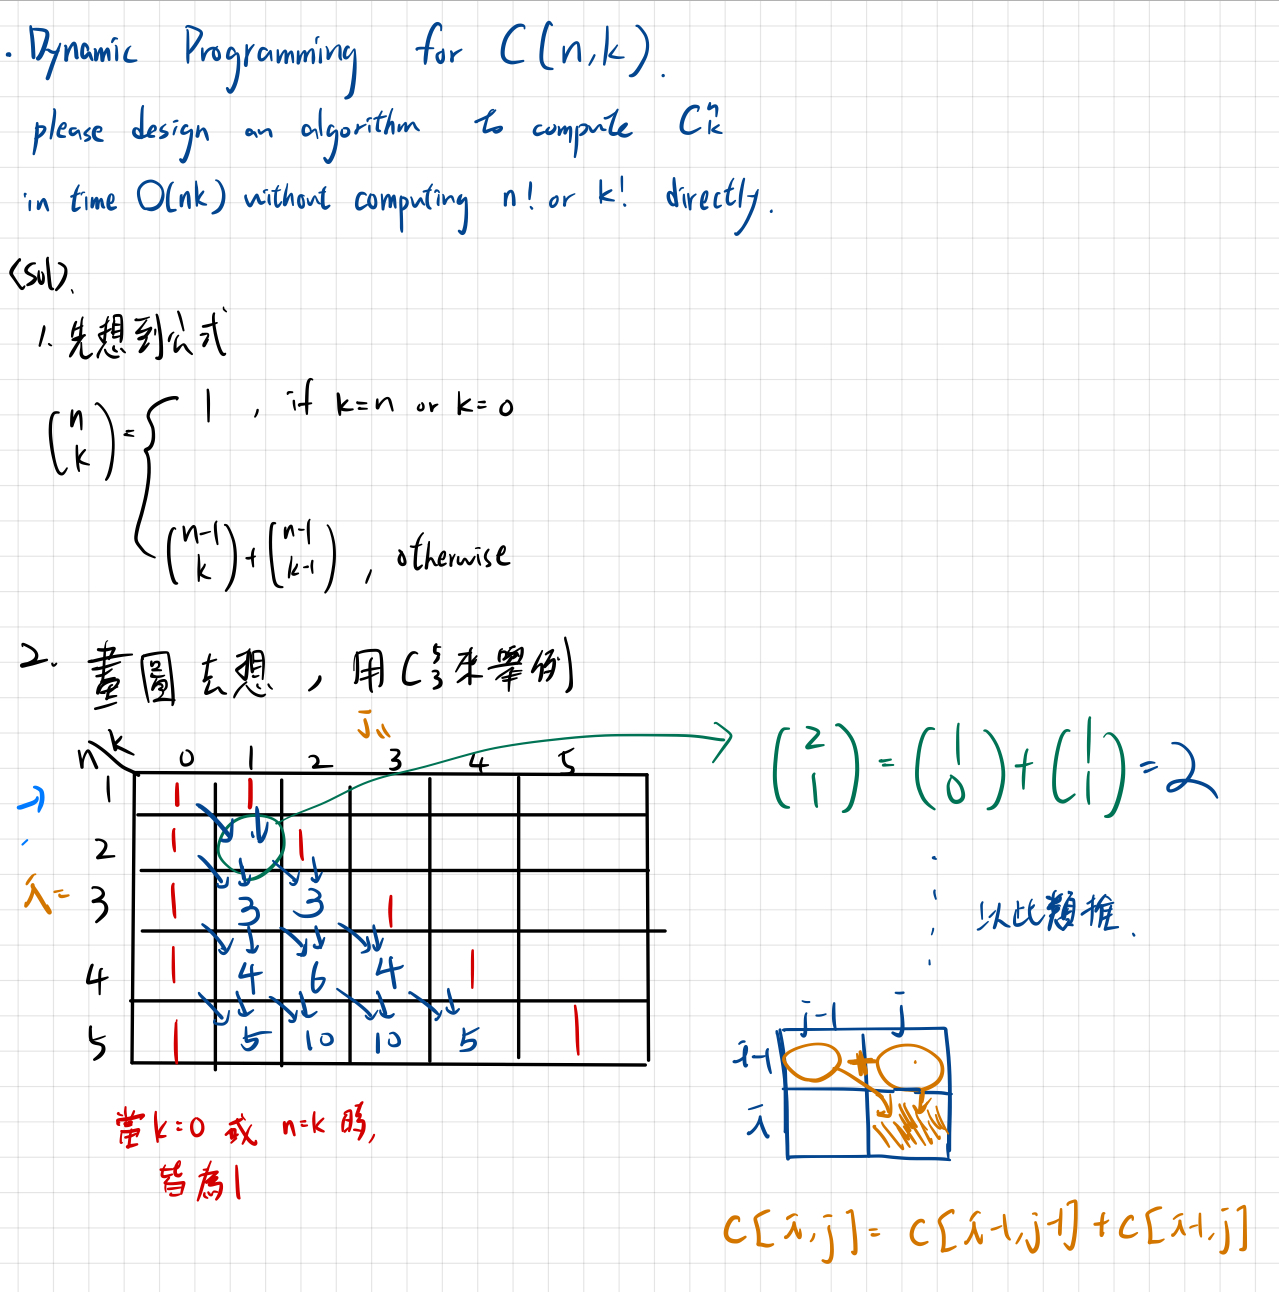 . Dynamic Programming for C(n,k).
please design an algorithm to compute C^n_k
in time O(nk) without computing n! or k! directly.
<sol>.
1. 先想到公式
(n k) = { 1 , if k=n or k=0
(n-1 k) + (n-1 k-1) , otherwise
2. 畫圖去想，用C^5_3來舉例
j=
n\k 0 1 2 3 4 5
1 1 1
2 1 1
i= 3 1 3 3 1
4 1 4 6 4 1
5 1 5 10 10 5 1
當k=0 或 n=k 時,
皆為1
(2 1) = (1 0) + (1 1) = 2
以此類推.
j-1 j
i-1 +
i
C[i,j] = C[i-1,j-1] + C[i-1,j]